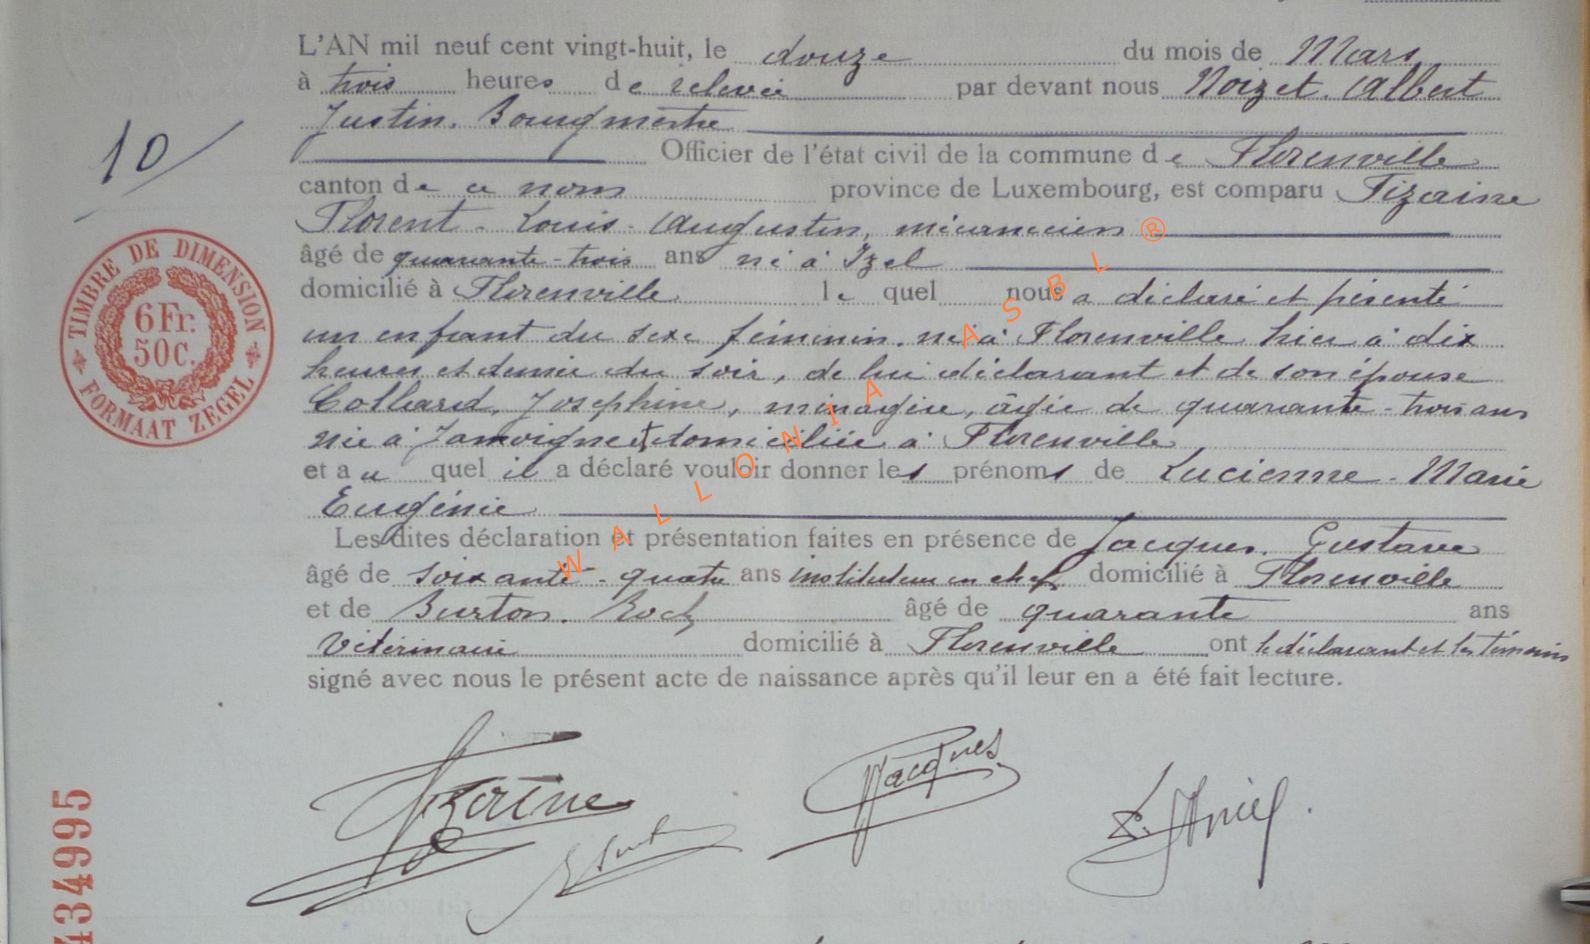 L'AN mil neuf cent vingt-huit, le douze du mois de Mars
à trois heures de relevée par devant nous Noizet. Albert
Justin. Bourgmestre
10
Officier de l'état civil de la commune de Florenville
canton de ce nom province de Luxembourg, est comparu Fizaine
Florent. Louis. Augustin, mécanicien
âgé de quarante-trois ans né à Izel
domicilié à Florenville lequel nous a déclaré et présenté
un enfant du sexe féminin. né à Florenville hier à dix
heures et demie du soir, de lui déclarant et de son épouse
Collard, Joséphine, ménagère, âgée de quarante-trois ans
née à Jamoigne et domiciliée à Florenville
et au quel il a déclaré vouloir donner les prénoms de Lucienne-Marie
Eugénie
Les dites déclaration et présentation faites en présence de Jacques. Gustave
âgé de soixante-quatre ans instituteur en chef domicilié à Florenville
et de Burton. Roch âgé de quarante ans
Vétérinaire domicilié à Florenville ont le déclarant et les témoins
signé avec nous le présent acte de naissance après qu'il leur en a été fait lecture.
TIMBRE DE DIMENSION
6 Fr.
50 C.
FORMAAT ZEGEL
WALLONIA ASBL ®
Fizaine
Jacques
434995